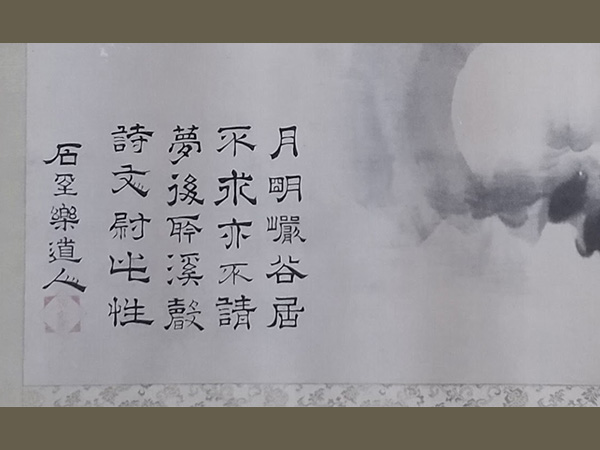 月明巖谷居
不求亦不請
夢後聆溪聲
詩文尉此性
石室樂道人